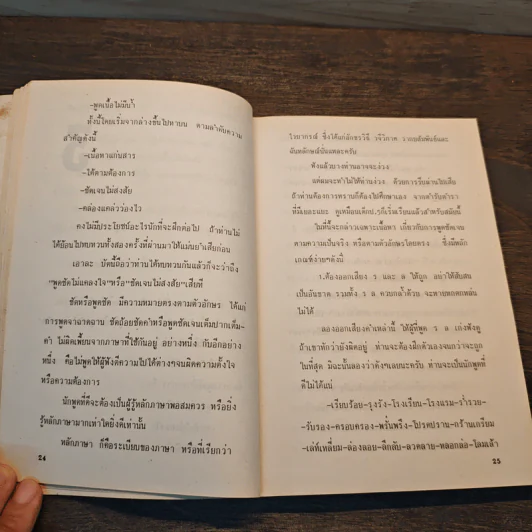 -พูดเนื้อไม่มีน้ำ
ทั้งนี้โดยเริ่มจากล่างขึ้นไปหาบน ตามลำดับความ
สำคัญดังนี้
-เนื้อหาแก่นสาร
-ได้ตามต้องการ
-ชัดเจนไม่สงสัย
-คล่องแคล่วว่องไว
คงไม่มีประโยชน์อะไรนักที่จะฝึกต่อไป ถ้าท่านไม่
ได้ย้อนไปทบทวนทั้งสองครั้งที่ผ่านมาให้แม่นยำเสียก่อน
เอาละ บัดนี้ถือว่าท่านได้ทบทวนกันแล้วก็จะว่าถึง
"พูดชัดไม่แคลงใจ"หรือ"ชัดเจนไม่สงสัย"เสียที
ชัดหรือพูดชัด มีความหมายตรงตามตัวอักษร ได้แก่
การพูดจาฉาดฉาน ชัดถ้อยชัดคำหรือพูดชัดเจนเต็มปากเต็ม-
คำ ไม่ผิดเพี้ยนจากภาษาที่ใช้กันอยู่ อย่างหนึ่ง กับอีกอย่าง
หนึ่ง คือไม่พูดให้ผู้ฟังตีความไปได้ต่างๆจนผิดความตั้งใจ
หรือความต้องการ
นักพูดที่ดีจะต้องเป็นผู้รู้หลักภาษาพอสมควร หรือยิ่ง
รู้หลักภาษามากเท่าใดยิ่งดีเท่านั้น
หลักภาษา ก็คือระเบียบของภาษา หรือที่เรียกว่า
24
ไวยากรณ์ ซึ่งได้แก่อักขรวิธี วจีวิภาค วากยสัมพันธ์และ
ฉันทลักษณ์นั่นแหละครับ
ฟังแล้วบางท่านอาจจะง่วง
แต่ผมจะทำไม่ให้ท่านง่วง ด้วยการรีบผ่านไปเสีย
ถ้าท่านต้องการทราบก็ต้องไปศึกษาเอง จากตำรับตำรา
ที่มีเยอะแยะ ดูเหมือนเด็กป.5ก็เริ่มเรียนแล้วสำหรับสมัยนี้
ในที่นี้จะกล่าวเฉพาะเนื้อหา เกี่ยวกับการพูดชัดเจน
ตามความเป็นจริง หรือตามตัวอักษรโดยตรง ซึ่งมีหลัก
เกณฑ์ง่ายๆดังนี้
1.ต้องออกเสียง ร และ ล ให้ถูก อย่าให้สับสน
เป็นอันขาด รวมทั้ง ร ล ควบกล้ำด้วย จะหายหกตกหล่น
ไม่ได้
ลองออกเสียงคำเหล่านี้ ให้ผู้ที่พูด ร ล เก่งฟังดู
ถ้าเขาทักว่ายังผิดอยู่ ท่านจะต้องฝึกตัวเองจนกว่าจะถูก
ในที่สุด มิฉะนั้นลองว่าด้วยๆเลยนะครับ ท่านจะเป็นนักพูดที่
ดีไม่ได้แน่
-เรียบร้อย-รุงรัง-โรงเรียน-โรงแรม-ร่ำรวย-
-รับรอง-ครอบครอง-พรั่นพรึง-โปรดปราน-กร้านเกรียม
-เล่ห์เหลี่ยม-ล่องลอย-ลึกลับ-ลวดลาย-หลอกล่อ-โลมเล้า
25